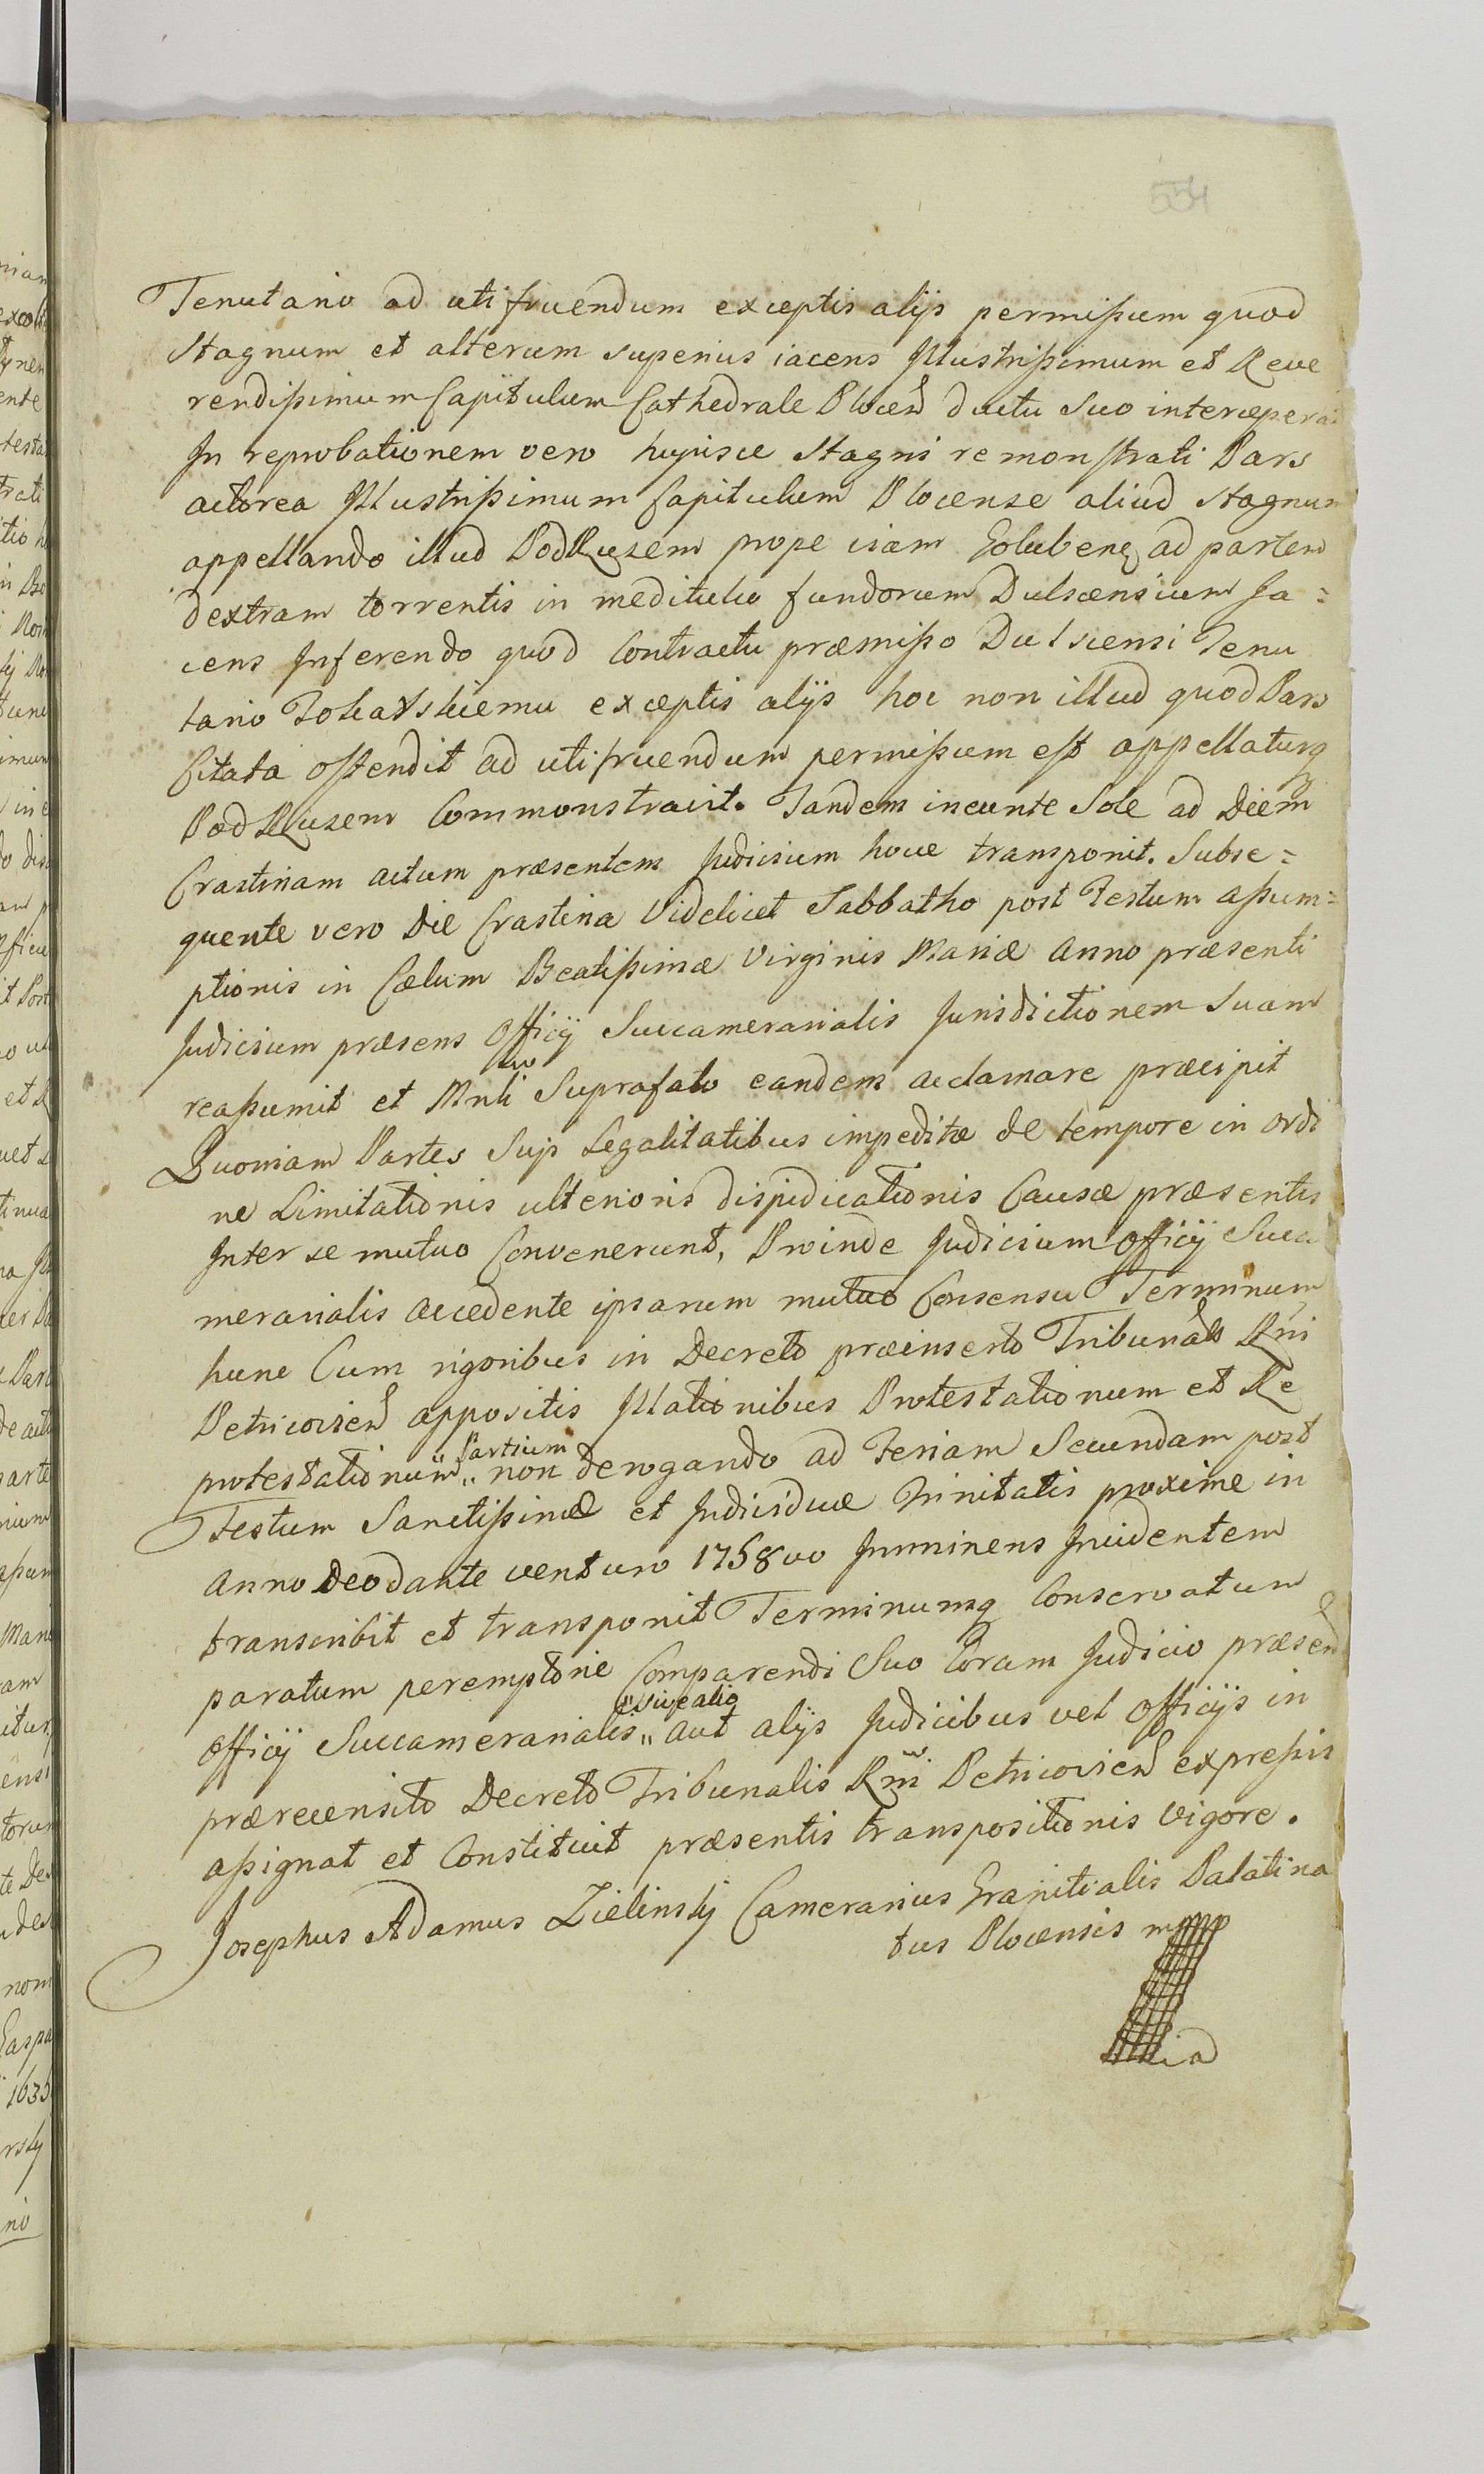 554
Tenutario ad uti fruendum exceptis alijs permißum quod
Stagnum et alterum superius iacens Illustrißimum et Reve
rendißimum Capitulum Cathedrale Plocen ductu Suo interceperat
In reprobationem vero hujusce Stagni remonstrati Pars
actorea Illustrißimum Capitulum Plocense aliud Stagnum
appellando illud PodRuzem prope viam ad partem
dextram torrentis in meditulio fundorum Dulscensium Ja=
cens Inferendo quod Contractu præmißo Dulscensi Tenu
tario exceptis alijs hoc non illud quod Pars
Citata ostendit ad uti fruendum permißum est appellatumq
PodRuzem Commonstravit. Tandem ineunte Sole ad Diem
Crastinam actum præsentem Judicium hocce transponit. Subse=
quente vero Die Crastina Videlicet Sabbatho post Festum aßum=
ptionis in Cælum Beatißimæ Virginis Mariæ Anno præsenti
Judicium præsens Officij Succamerarialis Jurisdictionem Suam
reaßumit et Mnli Suprafato eandem acclamare præcipit
Quoniam Partes Sup Legalitatibus impeditæ de tempore in ordi
ne Limitationis ulterioris disjudicationis Causæ præsentis
Inter se mutuo Convenerunt, Proinde Judicium Officij Succa
merarialis accedente ipsarum mutuo Consensu Terminum
hunc Cum rigoribus in Decreto præinserto Tribunalis Rni
Petricovien appositis Illationibus Protestationum et Re
protestationum „Partium„ non derogando ad Feriam Secundam post
Festum Sanctißimæ et Individuæ Trinitatis proxime in
Anno Deo dante venturo 1758vo Imminens Incidentem
transcribit et transponit Terminumq Conservatum
paratum peremptorie Comparendi Suo Coram Judicio præsen
Officij Succamerarialis „sive alio„ aut alijs Judicibus vel Officijs in
prærecensito Decreto Tribunalis Rni Petricovien expreßis
aßignat et Constituit præsentis transpositionis vigore.
Josephus Adamus Zielinskj Camerarius Granitialis Palatina
tus Plocensis mppp